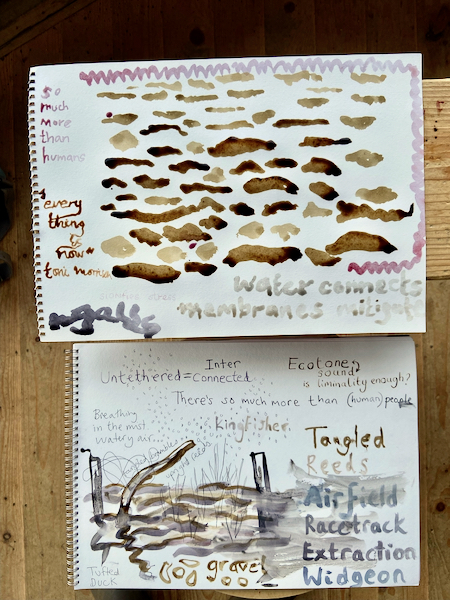 so
much
more
than
humans
"every
thing
is
now"
toni morrison
water connects
membranes mitigate
Inter
Untethered = Connected
Ecotone?
sound
is liminality enough?
There's so much more than (human) people
Breathing
in the mist
watery air
kingfisher
Tangled
Reeds
Airfield
Racetrack
Extraction
Widgeon
gravel
Tufted
Duck